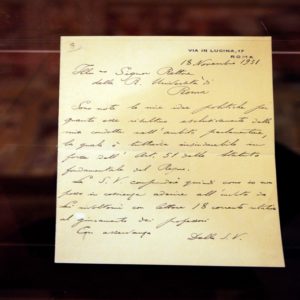 VIA IN LUCINA, 17
ROMA
18 Novembre 1931
Ill.mo Signor Rettore
della R. Università di
Roma
Sono note le mie idee politiche per
quanto esse risultino esclusivamente dalla
mia condotta nell'ambito parlamentare,
la quale è tuttavia insindacabile in
forza dell' Art. 51 dello Statuto
fondamentale del Regno.
La S. V. comprenderà quindi come io non
possa in coscienza aderire all'invito da
Lei rivoltomi con lettera 18 corrente relativa
al giuramento dei professori
Con osservanza
Della S. V.